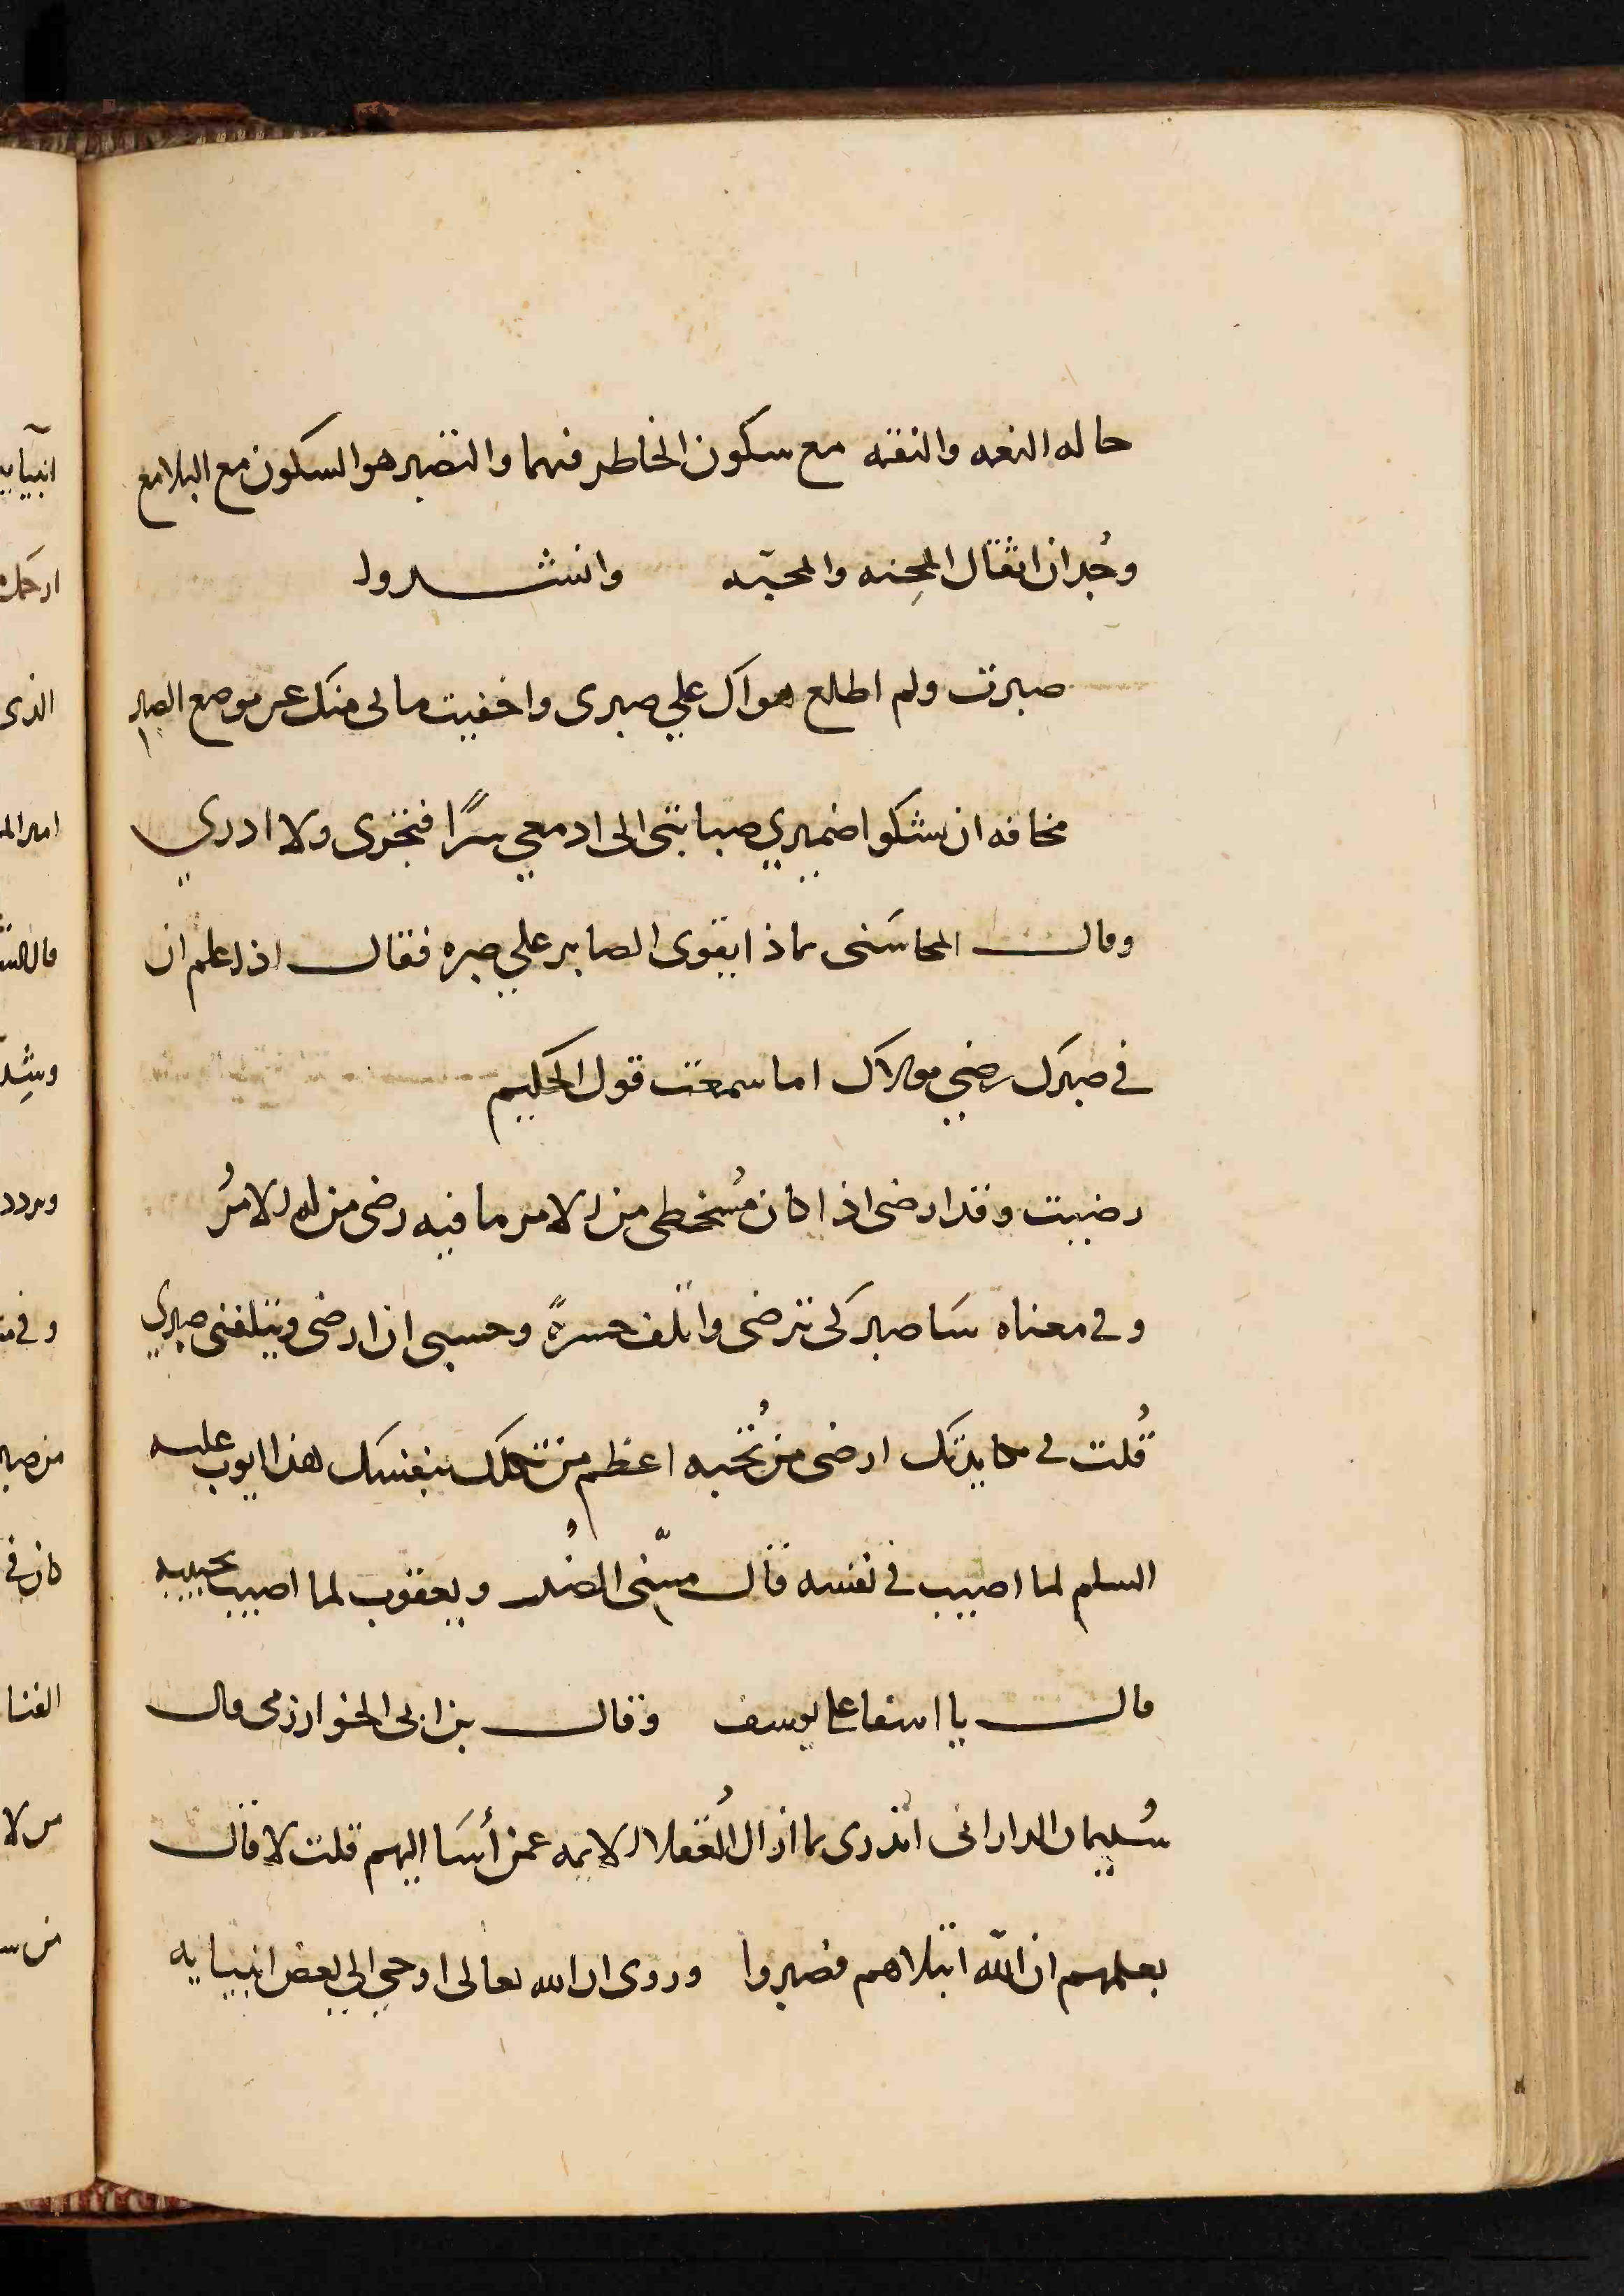 حاله النعمه والنقمه مع سكون الخاطر فيهما والتصبر هو السكون مع البلا مع
وُجدان اثقال المحِنه والمحبّه وانشدوا
صبرت ولم اطلع هواك علي صبرى واخفيت مالى منك عن موضع الصبر
مخافه ان يشكوا ضميري صبابتى الى ادمعي سرًا فتجرى ولا ادري
وقال المحاسَبى بماذا يقوى الصابر علي صبره فقال اذا علم ان
في صبرك رضي مولاك اما سمعت قول الحكيم
رضيت وقد ارضى اذا كان مُسخطى من الامر ما فيه رضى من له الامرُ
وفي معناه سَاصبر كى ترضى واتلف حسرةً وحسبى ان ارضى ويتلفنى صبري
قُلت في مكابدتك ارضى من تُحبه اعظم من بنفسك هذا ايوب عليه
السلم لما اصيب في نفسه قال مسّنى الضُر ويعقوب لما اصيب بحبيبه
قال يا اسفا على يوسف وقال بن ابى الخوارزمى قال
سُليمان الدارانى اتدرى بما ازال العُقلا الايمه عمن أسَا اليهم قلت لا قال
بعلمهم ان الله ابتلاهم فصبروا وروى ان الله تعالى اوحي الي بعض انبيايه
انبيايه
ارحمك
الذى
امير
قال
وشِدّ
وتردد
وفي
من صبر
كان في
الفنا
من لا
من